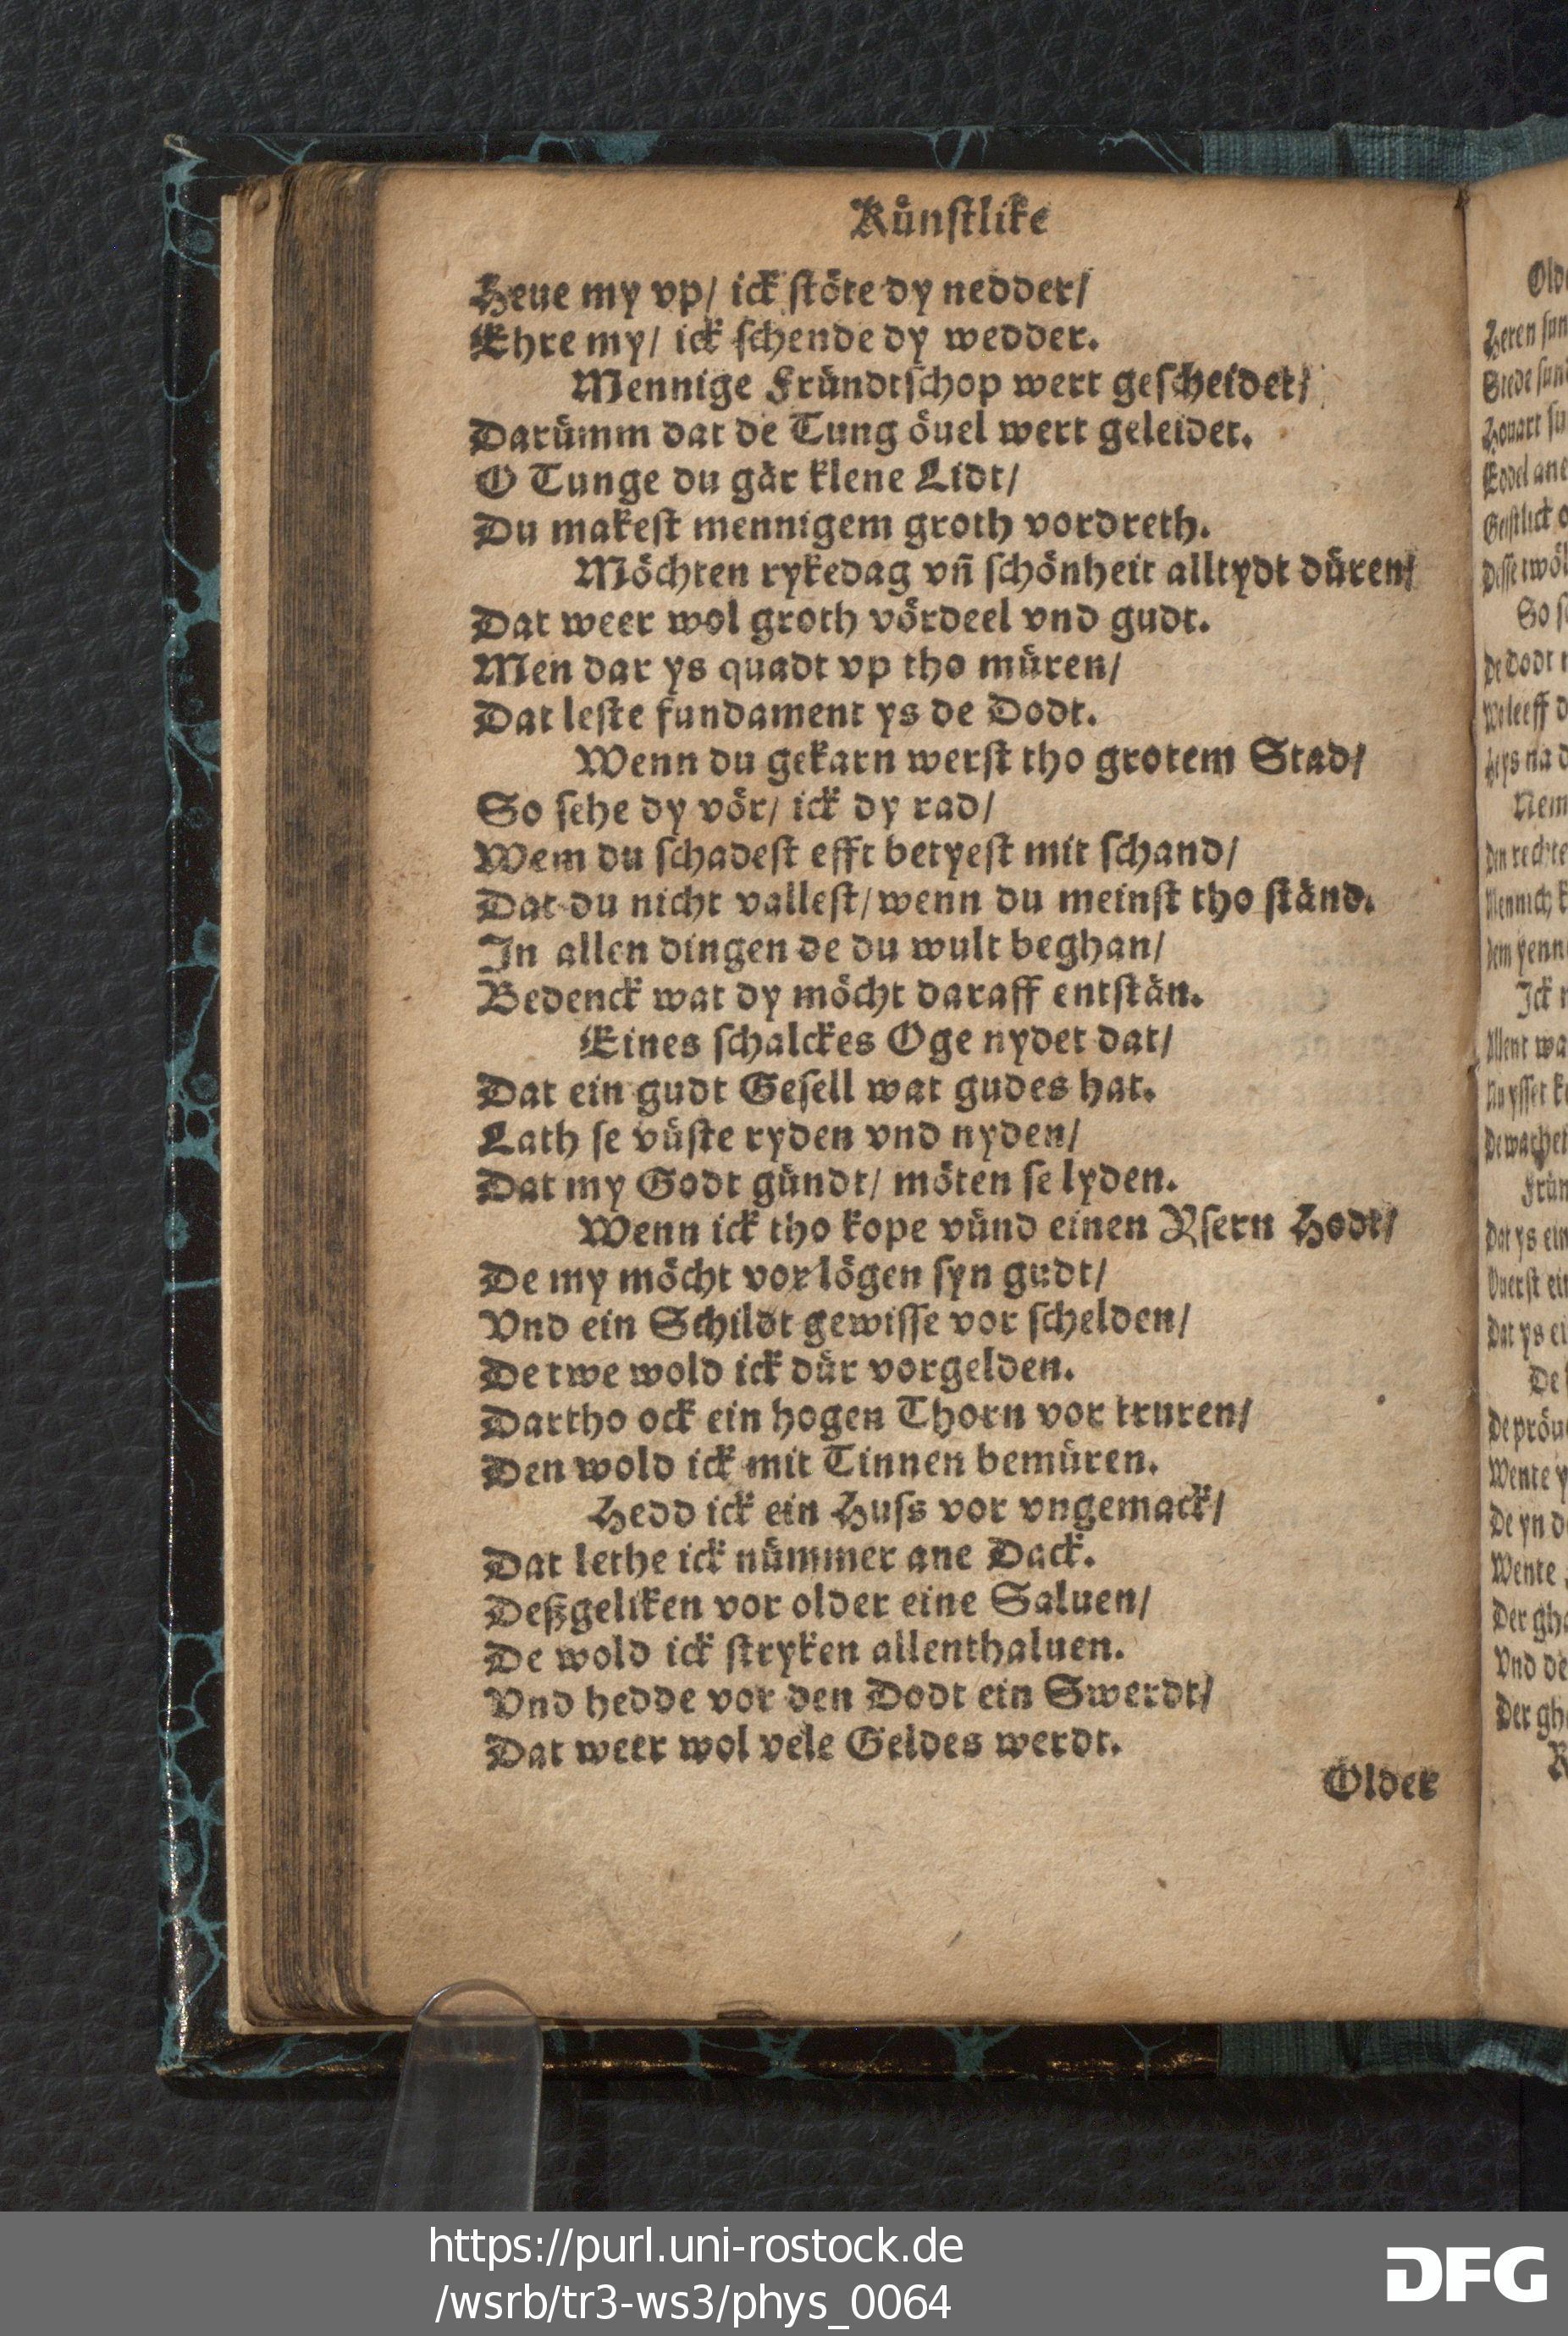 Kuͤnſtlike
Heue my vp/ ick ſtoͤte dy nedder/
Ehre my/ ick ſchende dy wedder.
Mennige Fruͤndtſchop wert geſcheidet/
Daruͤmm dat de Tung oͤuel wert geleidet.
O Tunge du gaͤr klene Lidt/
Du makeſt mennigem groth vordreth.
Moͤchten rykedag vn̄ ſchoͤnheit alltydt duͤren/
Dat weer wol groth voͤrdeel vnd gudt.
Men dar ys quadt vp tho muͤren/
Dat leſte fundament ys de Dodt.
Wenn du gekarn werſt tho grotem Stad/
So ſehe dy voͤr/ ick dy rad/
Wem du ſchadeſt efft betyeſt mit ſchand/
Dat du nicht valleſt/ wenn du meinſt tho ſtaͤnd.
In allen dingen de du wult beghan/
Bedenck wat dy moͤcht daraff entſtaͤn.
Eines ſchalckes Oge nydet dat/
Dat ein gudt Geſell wat gudes hat.
Lath ſe vuͤſte ryden vnd nyden/
Dat my Godt guͤndt/ moͤten ſe lyden.
Wenn ick tho kope vuͤnd einen Yſern Hodt/
De my moͤcht vor loͤgen ſyn gudt/
Vnd ein Schildt gewiſſe vor ſchelden/
De twe wold ick duͤr vorgelden.
Dartho ock ein hogen Thorn vor truren/
Den wold ick mit Tinnen bemuͤren.
Hedd ick ein Huſs vor vngemack/
Dat lethe ick nuͤmmer ane Dack.
Deßgeliken vor older eine Saluen/
De wold ick ſtryken allenthaluen.
Vnd hedde vor den Dodt ein Swerdt/
Dat weer wol vele Geldes werdt.
Older
https://purl.uni-rostock.de
/wsrb/tr3-ws3/phys_0064
DFG